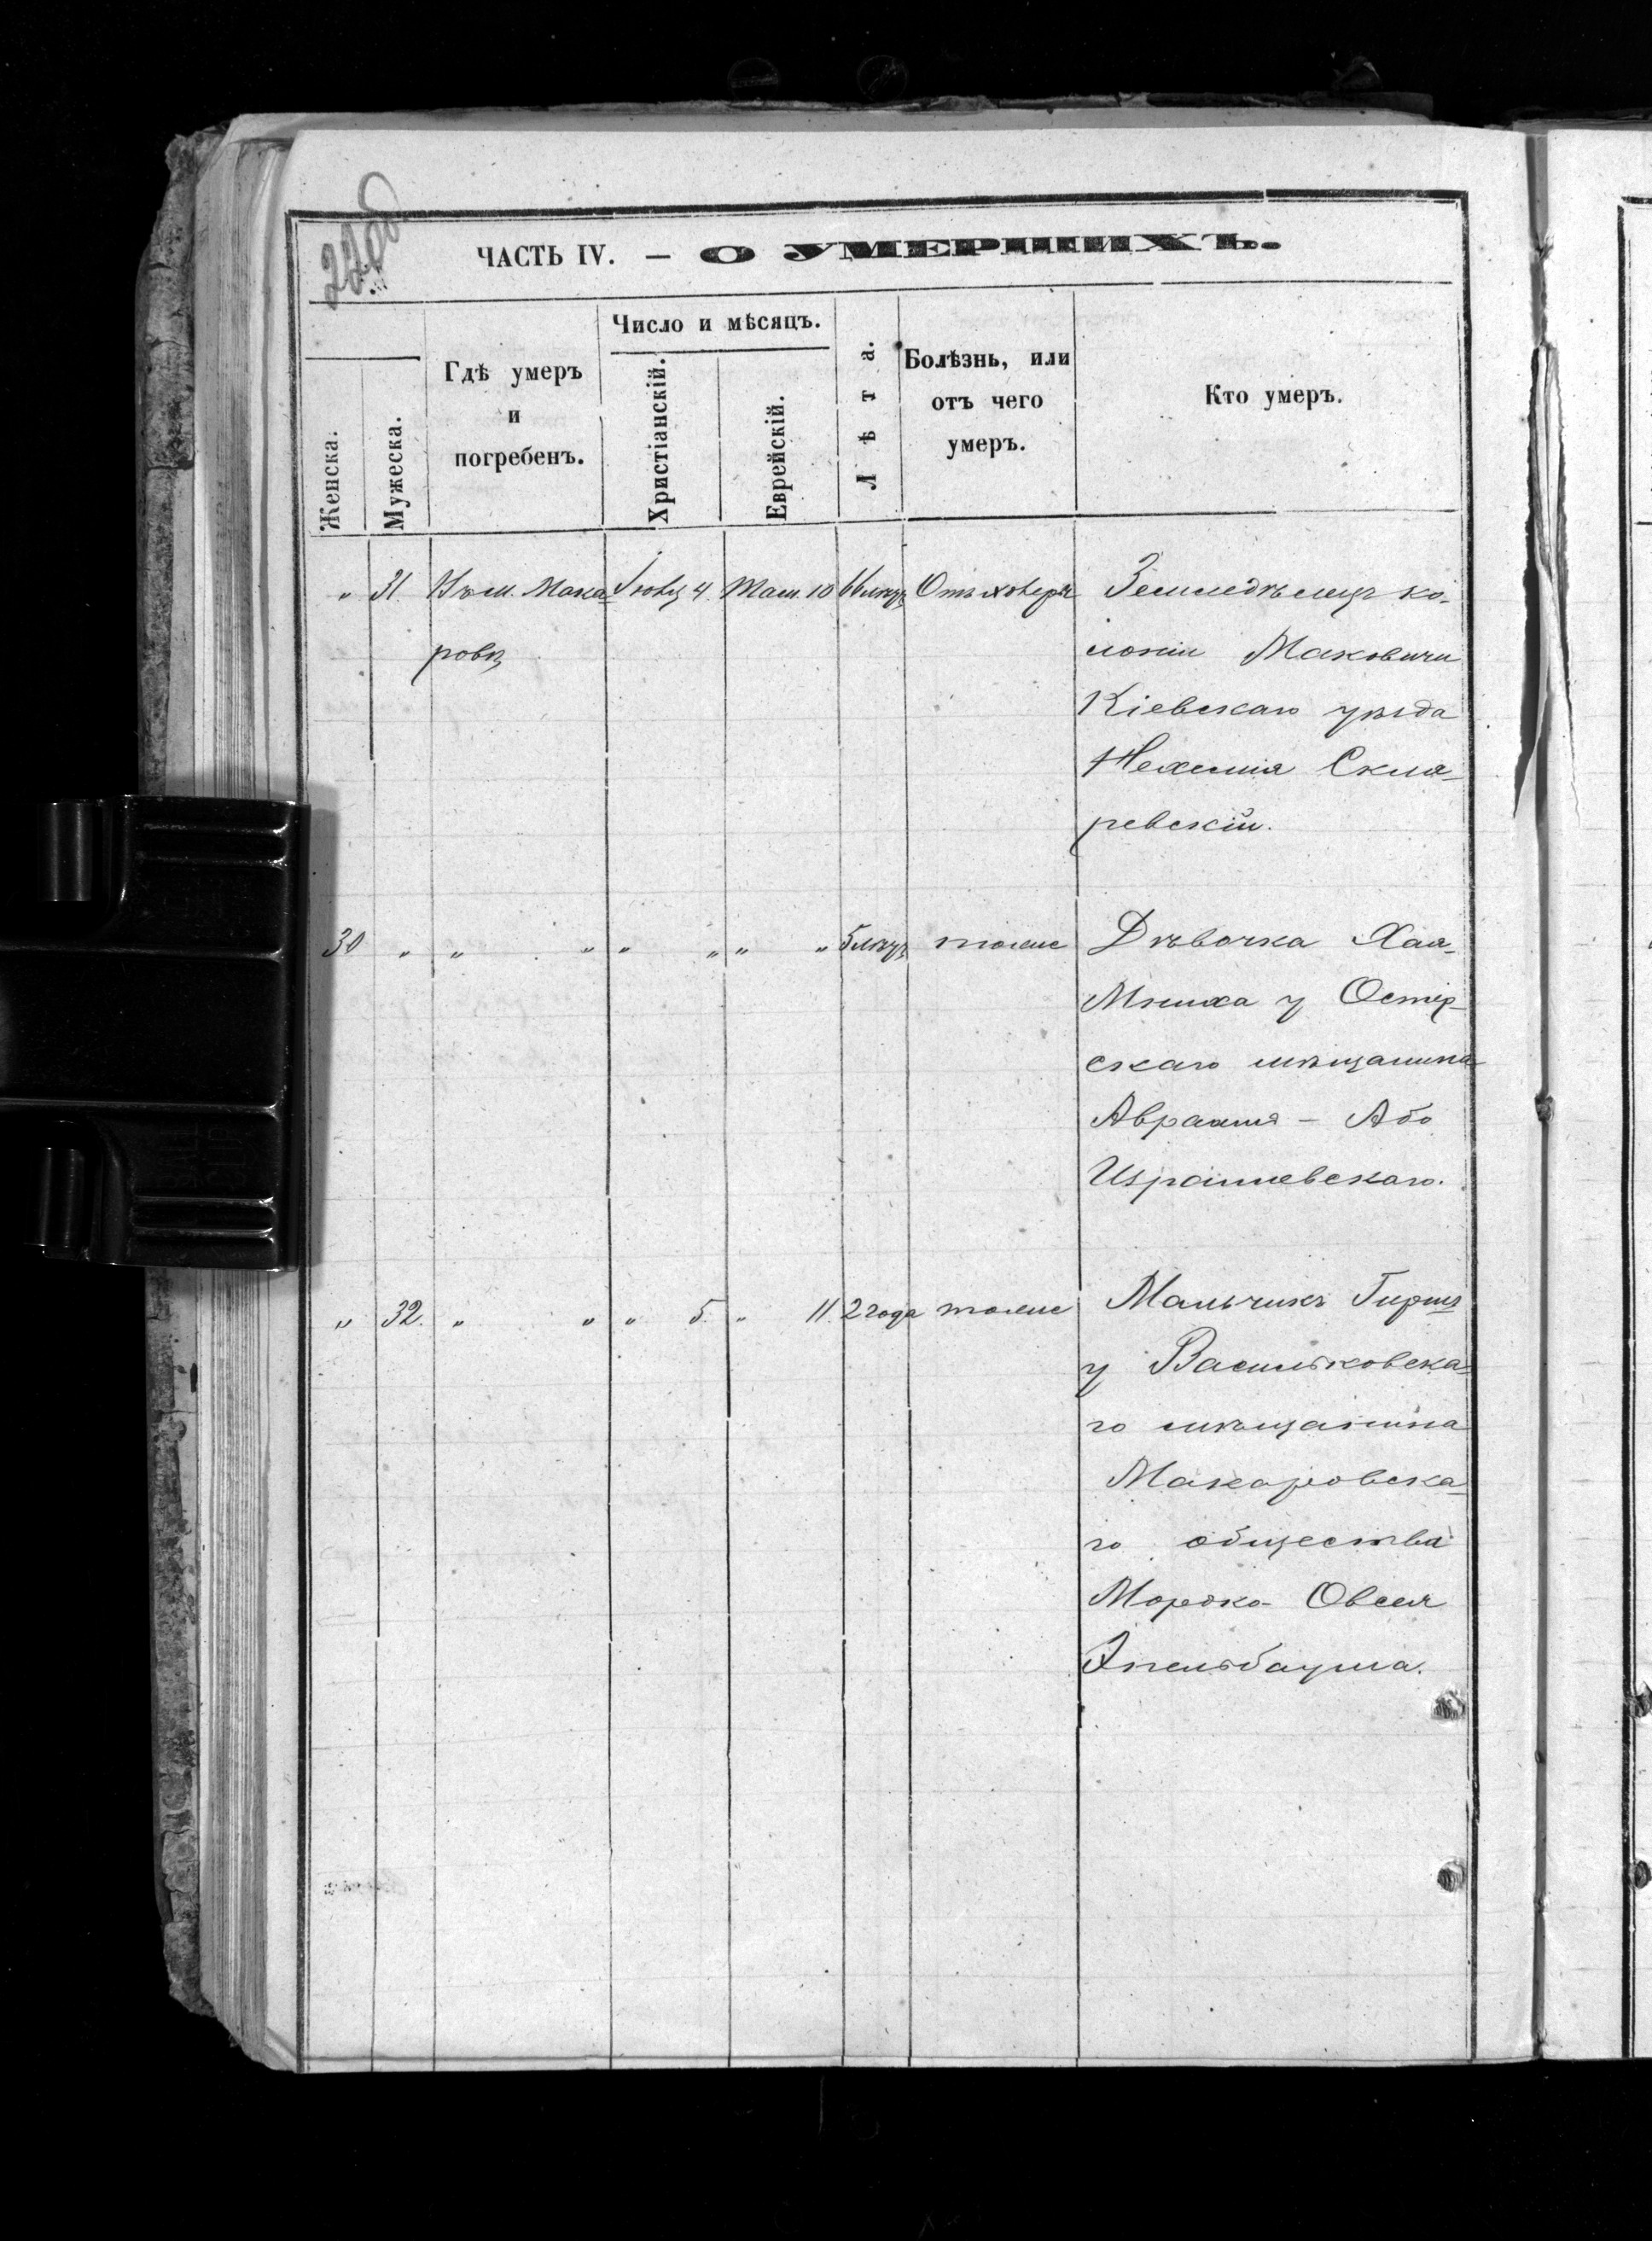 220об
ЧАСТЬ IV. — О УМЕРШИХЪ.
Женска.
Мужеска.
Гдѣ умеръ
и
погребенъ.
Число и мѣсяцъ.
Христіанскій.
Еврейскій.
Лѣта.
Болѣзнь, или
отъ чего
умеръ.
Кто умеръ.
" 31. Въ м. Мака- 4. Там. 10 Отъ холеры Земледѣлецъ ко-
ровѣ
лоніи Маковичи
Кіевскаго уѣзда
Нехемія Скля-
ревскій.
30 " " " " " " " 5 лѣтъ тоже Дѣвочка Хая-
у Остер-
скаго мѣщанина
Авраама - Або
Израилевскаго.
" 32. " " " 5. " 11. 2 года тоже Мальчикъ Гиршъ
у Васильковска-
го мѣщанина
Макаровска-
го общества
Мордко- Овсея
Эпельбаума.